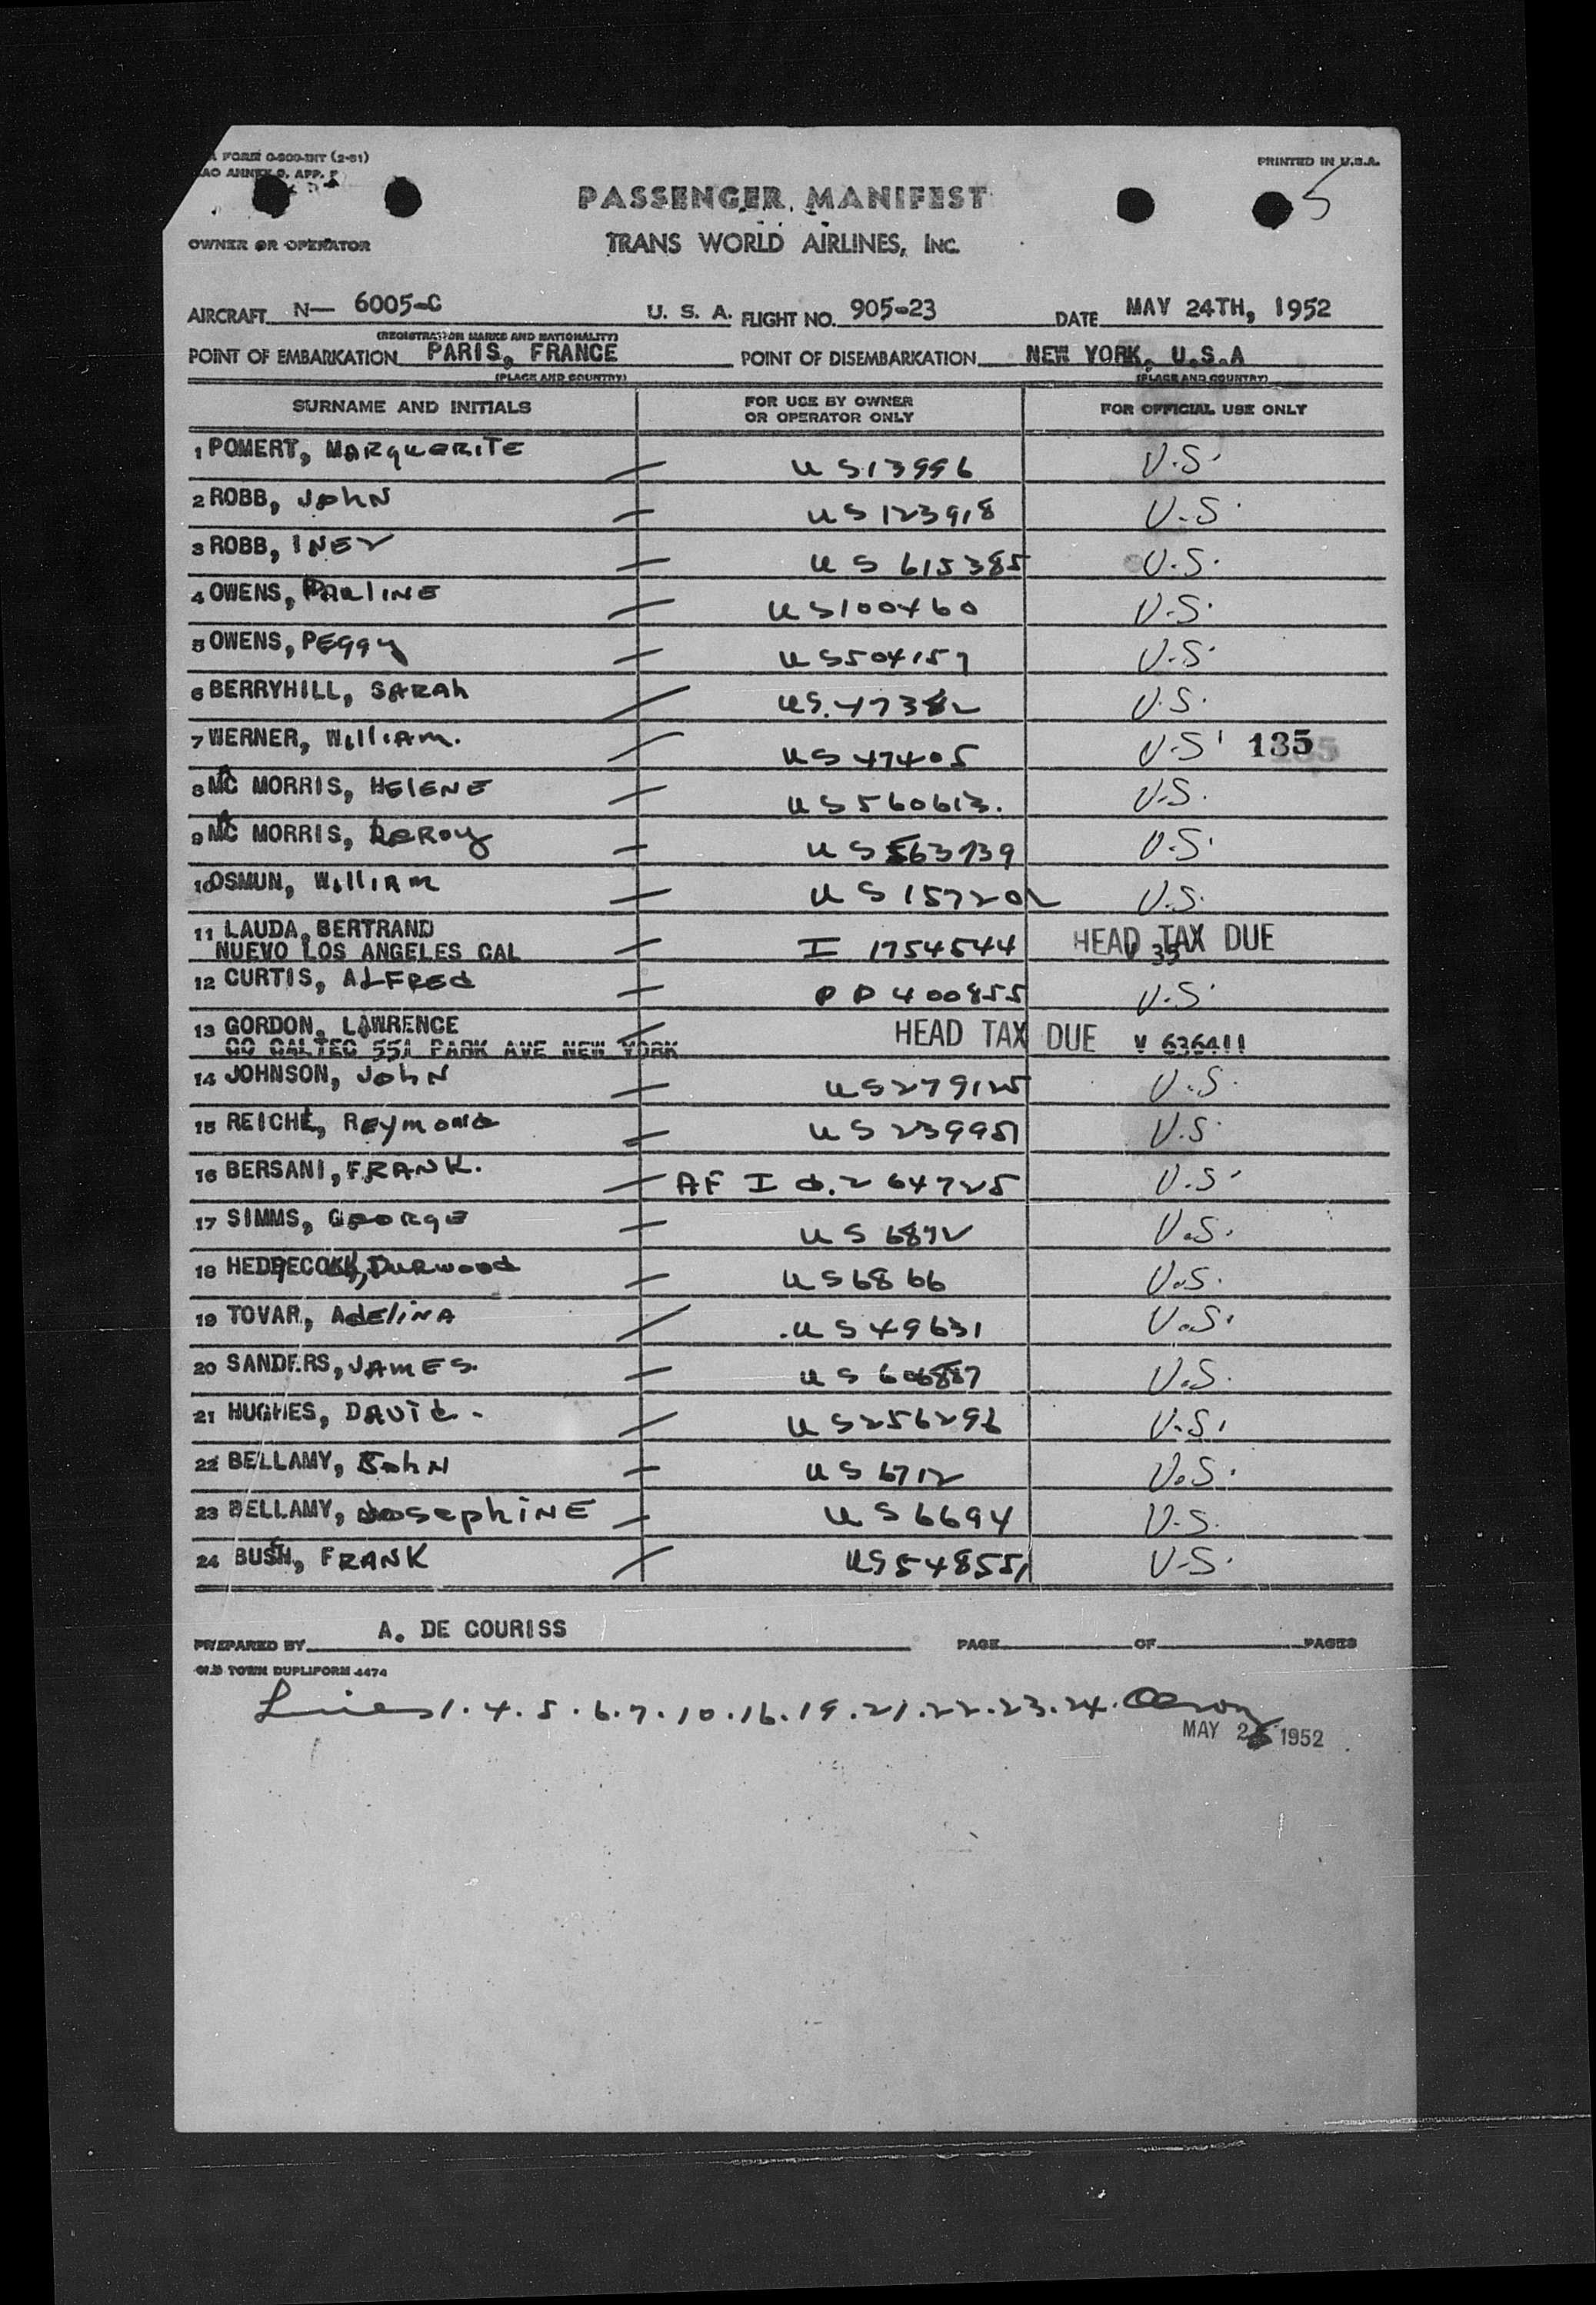 A FORM 0-800-INT (2-51)
PRINTED IN U.S.A.
ICAO ANNEX 9, APP.
5
PASSENGER MANIFEST
OWNER OR OPERATOR
TRANS WORLD AIRLINES, INC.
AIRCRAFT N— 6005-C U. S. A. FLIGHT NO. 905-23 DATE MAY 24TH, 1952
(REGISTRATION MARKS AND NATIONALITY)
POINT OF EMBARKATION PARIS, FRANCE POINT OF DISEMBARKATION NEW YORK, U.S.A
(PLACE AND COUNTRY) (PLACE AND COUNTRY)
SURNAME AND INITIALS FOR USE BY OWNER OR OPERATOR ONLY FOR OFFICIAL USE ONLY
1 POMERT, MARQUERITE — US13996 U.S.
2 ROBB, JOHN — US 123918 U.S.
3 ROBB, INEZ — US 615385 U.S.
4 OWENS, PAULINE — US100460 U.S.
5 OWENS, PEGGY — US504157 U.S.
6 BERRYHILL, SARAH — US.47382 U.S.
7 WERNER, WILLIAM. — US 47405 U.S. 135
8 MC MORRIS, HELENE — US560613. U.S.
9 MC MORRIS, LEROY — US 563739 U.S.
10 OSMUN, WILLIAM — US 157202 U.S.
11 LAUDA, BERTRAND — I 1754544 HEAD TAX DUE
NUEVO LOS ANGELES CAL V 35
12 CURTIS, ALFRED — PP 400855 U.S.
13 GORDON, LAWRENCE — HEAD TAX DUE V 636411
CO CALTEC 551 PARK AVE NEW YORK
14 JOHNSON, JOHN — US279125 U.S.
15 REICHE, REYMOND — US 239951 U.S.
16 BERSANI, FRANK. — AF I d.264725 U.S.
17 SIMMS, GEORGE — US 6872 U.S.
18 DURWOOD — US6866 U.S.
19 TOVAR, ADELINA — US 49631 U.S.
20 SANDERS, JAMES. — US 606887 U.S.
21 HUGHES, DAVID. — US256296 U.S.
22 BELLAMY, JOHN — US 6712 U.S.
23 BELLAMY, JOSEPHINE — US 6694 U.S.
24 BUSH, FRANK — US548551 U.S.
PREPARED BY A. DE COURISS PAGE OF PAGES
OLD TOWN DUPLIFORM 4474
Lines 1.4.5.6.7.10.16.19.21.22.23.24.
MAY 1952